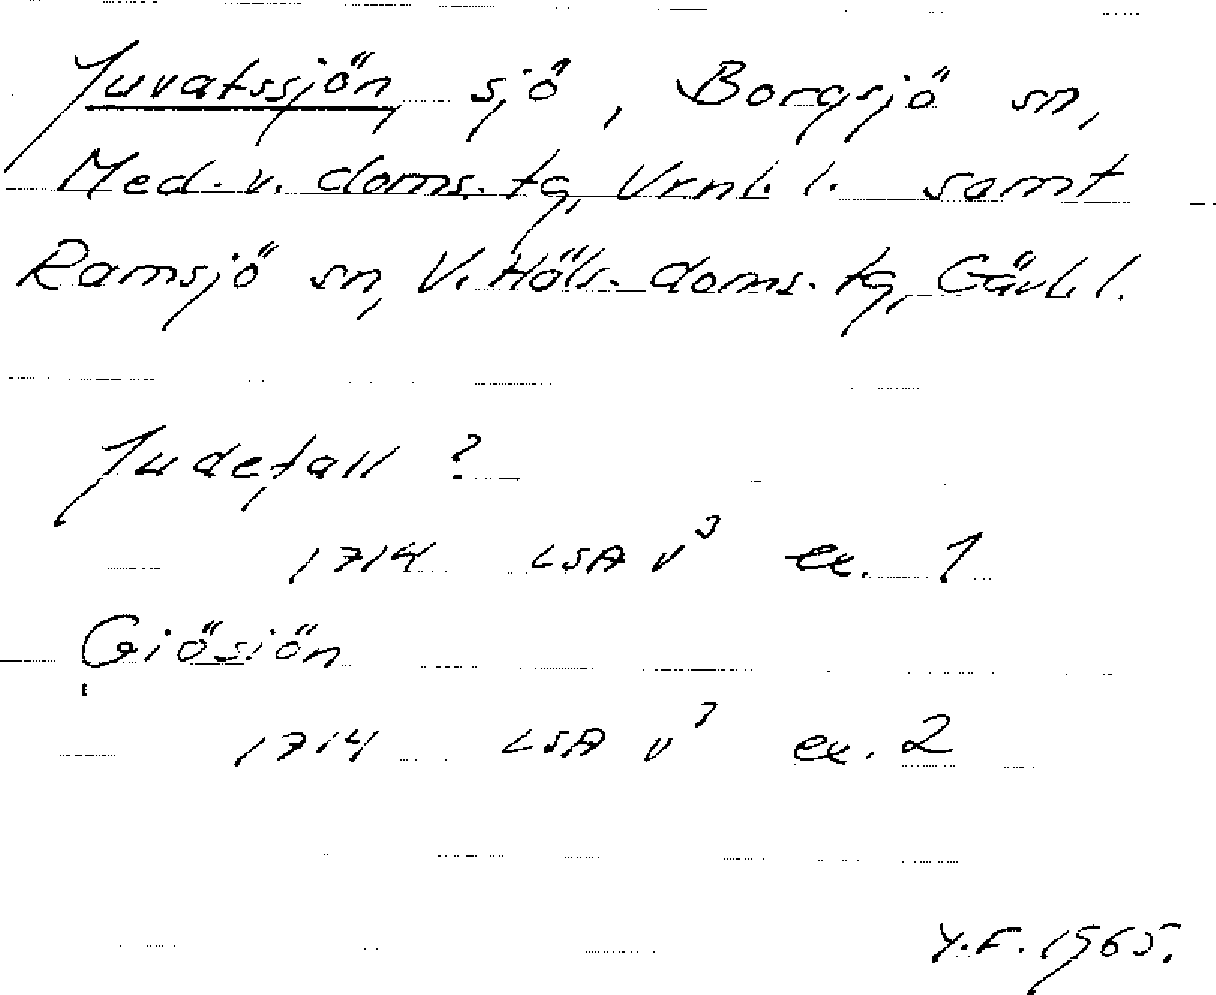 Juvatssjön, sjö, Borgsjö sn,
Med. v. doms. tg, Vrnl. l. samt
Ramsjö sn, V. Häls. doms. tg, Gävl. l.
Judefall ?
1714 LSA v³ ex. 1
Giösiön
1714 LSA v³ ex. 2
Y.F. 1965.